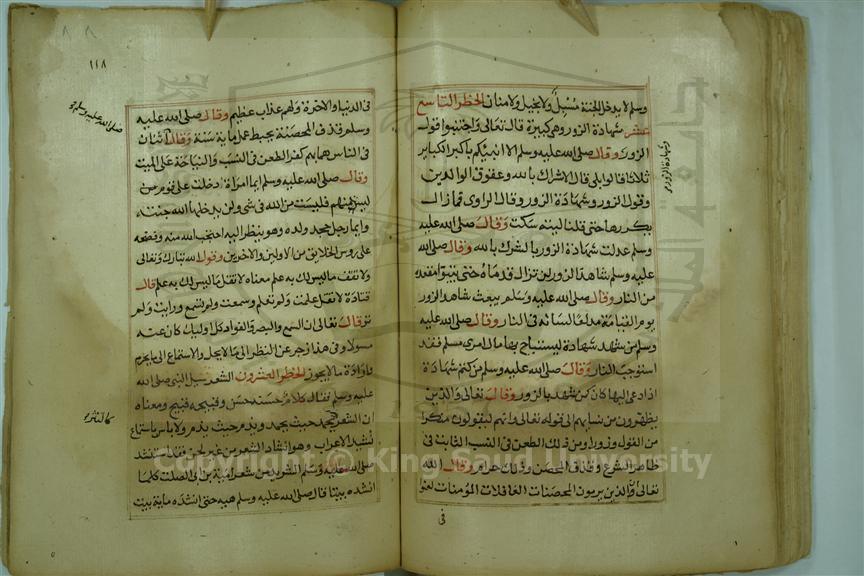 وسلم لا يدخل الجنة مسبل ولا بخيل ولا منان الحظر التاسع
عشر شهادة الزور وهى كبيرة قال تعالى واجتنبوا قول
الزور وقال صلى الله عليه وسلم الا انبئكم باكبر الكباير
ثلاثا قالوا بلى قال الاشراك بالله وعقوق الوالدين
وقول الزور وشهادة الزور وقال الراوى فما زال
يكررها حتى قلنا ليته سكت وقال صلى الله عليه
وسلم عدلت شهادة الزور بالشرك بالله وقال صلى الله
عليه وسلم شاهد الزور لن تزال قدماه حتى يتبوا مقعده
من النار وقال صلى الله عليه وسلم يبعث شاهد الزور
يوم القيامة مدلعا لسانه فى النار وقال صلى الله عليه
وسلم من شهد شهادة ليستباح بها مال امرئ مسلم فقد
استوجب النار وقال صلى الله عليه وسلم من كتم شهادة
اذا دعى اليها كان كمن شهد بالزور وقال تعالى والذين
يظهرون من نسايهم الى قوله تعالى وانهم ليقولون منكرا
من القول وزورا ومن ذلك الطعن فى النسب الثابت فى
ظاهر الشرع وقذف المحصن وذلك حرام وقال الله
تعالى والذين يرمون المحصنات الغافلات المؤمنات لعنوا
فى
وشهادة الزور
١١٨
فى الدنيا والاخرة ولهم عذاب عظيم وقال صلى الله عليه
وسلم قذف المحصنة يحبط عمل ماية سنة وقال اثنان
فى الناس هما بهم كفر الطعن فى النسب والنياحة على الميت
وقال صلى الله عليه وسلم ايما امراة دخلت على قوم من
ليس منهم فليست من الله فى شى ولن يدخلها الله جنته
وايما رجل جحد ولده وهو ينظر اليه احتجب الله منه وفضحه
على روس الخلايق من الاولين والاخرين وقول الله تبارك وتعالى
ولا تقف ما ليس لك به علم معناه لا تقل ما ليس لك به علم قال
قتادة لا تقل علمت ولم تعلم وسمعت ولم تسمع ورايت ولم
تر وقال تعالى ان السمع والبصر والفواد كل اوليك كان عنه
مسولا وفى هذا زجر عن النظر الى ما لا يحل والاستماع الى ما يحرم
وارادة ما لا يجوز الحظر العشرون الشعر سيل النبى صلى الله
عليه وسلم فقال كلام حسنه حسن وقبيحه قبيح ومعناه
ان الشعر يحمد حيث يحمد ويذم حيث يذم ولا باس باستماع
نشيد الاعراب وهو انشاد الشعر من غير لحن فقد استنشد
صلى الله عليه وسلم الشريد من شعر امية بن ابى الصلت كلما
انشده بيتا قال صلى الله عليه وسلم هيه حتى انشده ماية بيت
صلى الله عليه وسلم
كالنثر
Copyright © King Saud University